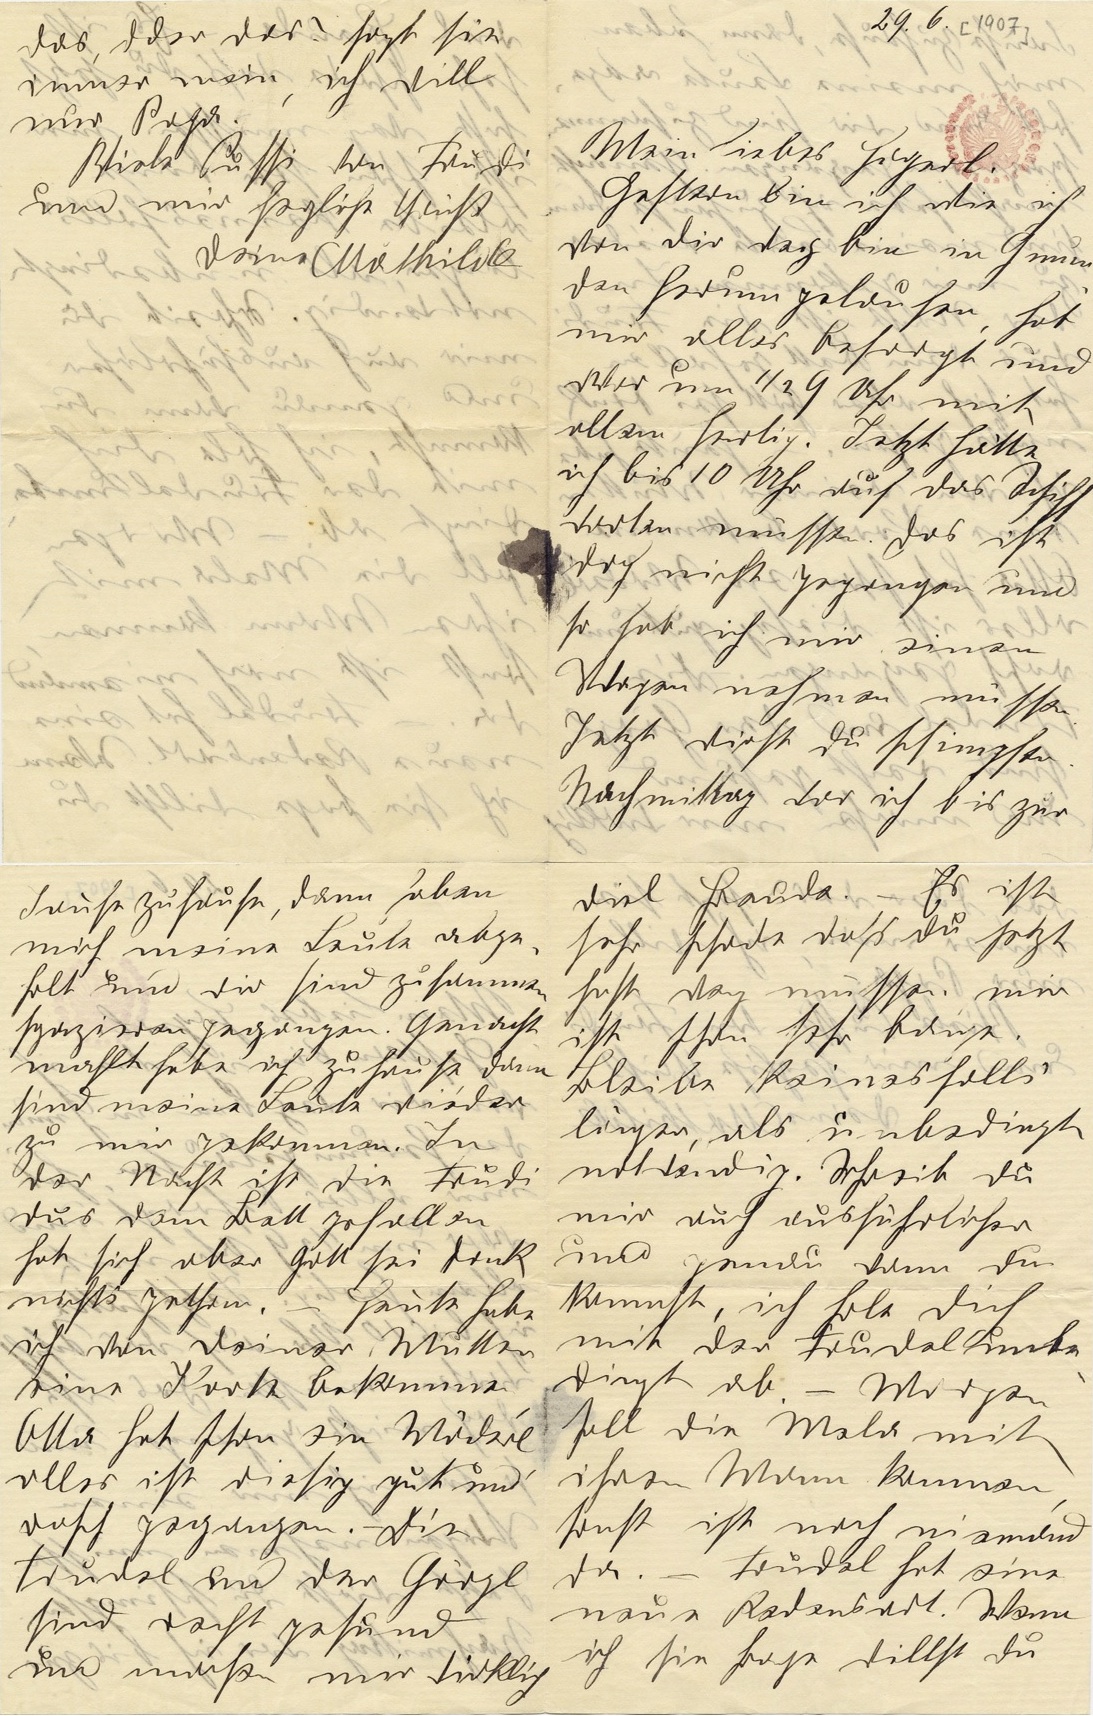 29. 6. [1907]
Mein liebes Hugerl.
Gestern bin ich wie ich
von dir weg bin in Gmun
den herumgelaufen, hab
mir alles besorgt und
war um 1/2 9 Uhr mit
allem fertig. Jetzt hätte
ich bis 10 Uhr auf das Schiff
warten müssen. Das ist
doch nicht gegangen und
so hab ich mir einen
Wagen nehmen müssen.
Jetzt wirst du schimpfen.
Nachmittag war ich bis zur
Jause zuhause, dann haben
mich meine Leute abge-
holt und wir sind zusammen
spazieren gegangen. Genacht
mahlt habe ich zuhause dann
sind meine Leute wieder
zu mir gekommen. In
der Nacht ist die Trudi
aus dem Bett gefallen
hat sich aber Gott sei dank
nichts gethan. – Heute habe
ich von Deiner Mutter
eine Karte bekommen
Otta hat schon ein Mäderl
alles ist riesig gut und
rasch gegangen. – Die
Trudel und der Görgl
sind recht gesund
und machen mir wirklich
viel Freude. – Es ist
sehr schade dass du jetzt
hast weg müssen. mir
ist schon sehr bange.
Bleibe keinesfalls
länger, als unbedingt
notwendig. Schreib du
mir auch ausführlicher
und genau wann du
kommst, ich hole dich
mit der Trudel unbe-
dingt ab. – Morgen
soll die Mela mit
ihren Mann kommen,
sonst ist noch niemand
da. – Trudel hat eine
neue Redensart. Wenn
ich sie frage willst du
das, oder das? sagt sie
immer nein, ich will
nur Papa.
Viele Bussi von Trudi
und mir herzlichst grüßt
Deine Mathilde